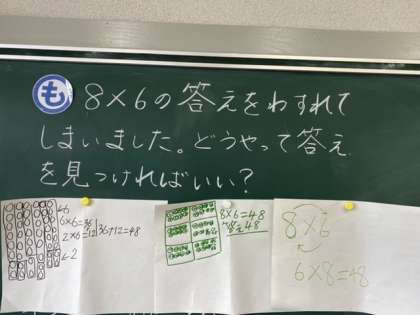 も
8×6の答えをわすれて
しまいました。どうやって答え
を見つければいい?
6
6×6=36
2×6=12
36+12=48
2
8×6=48
答え48
8×6
6×8=48